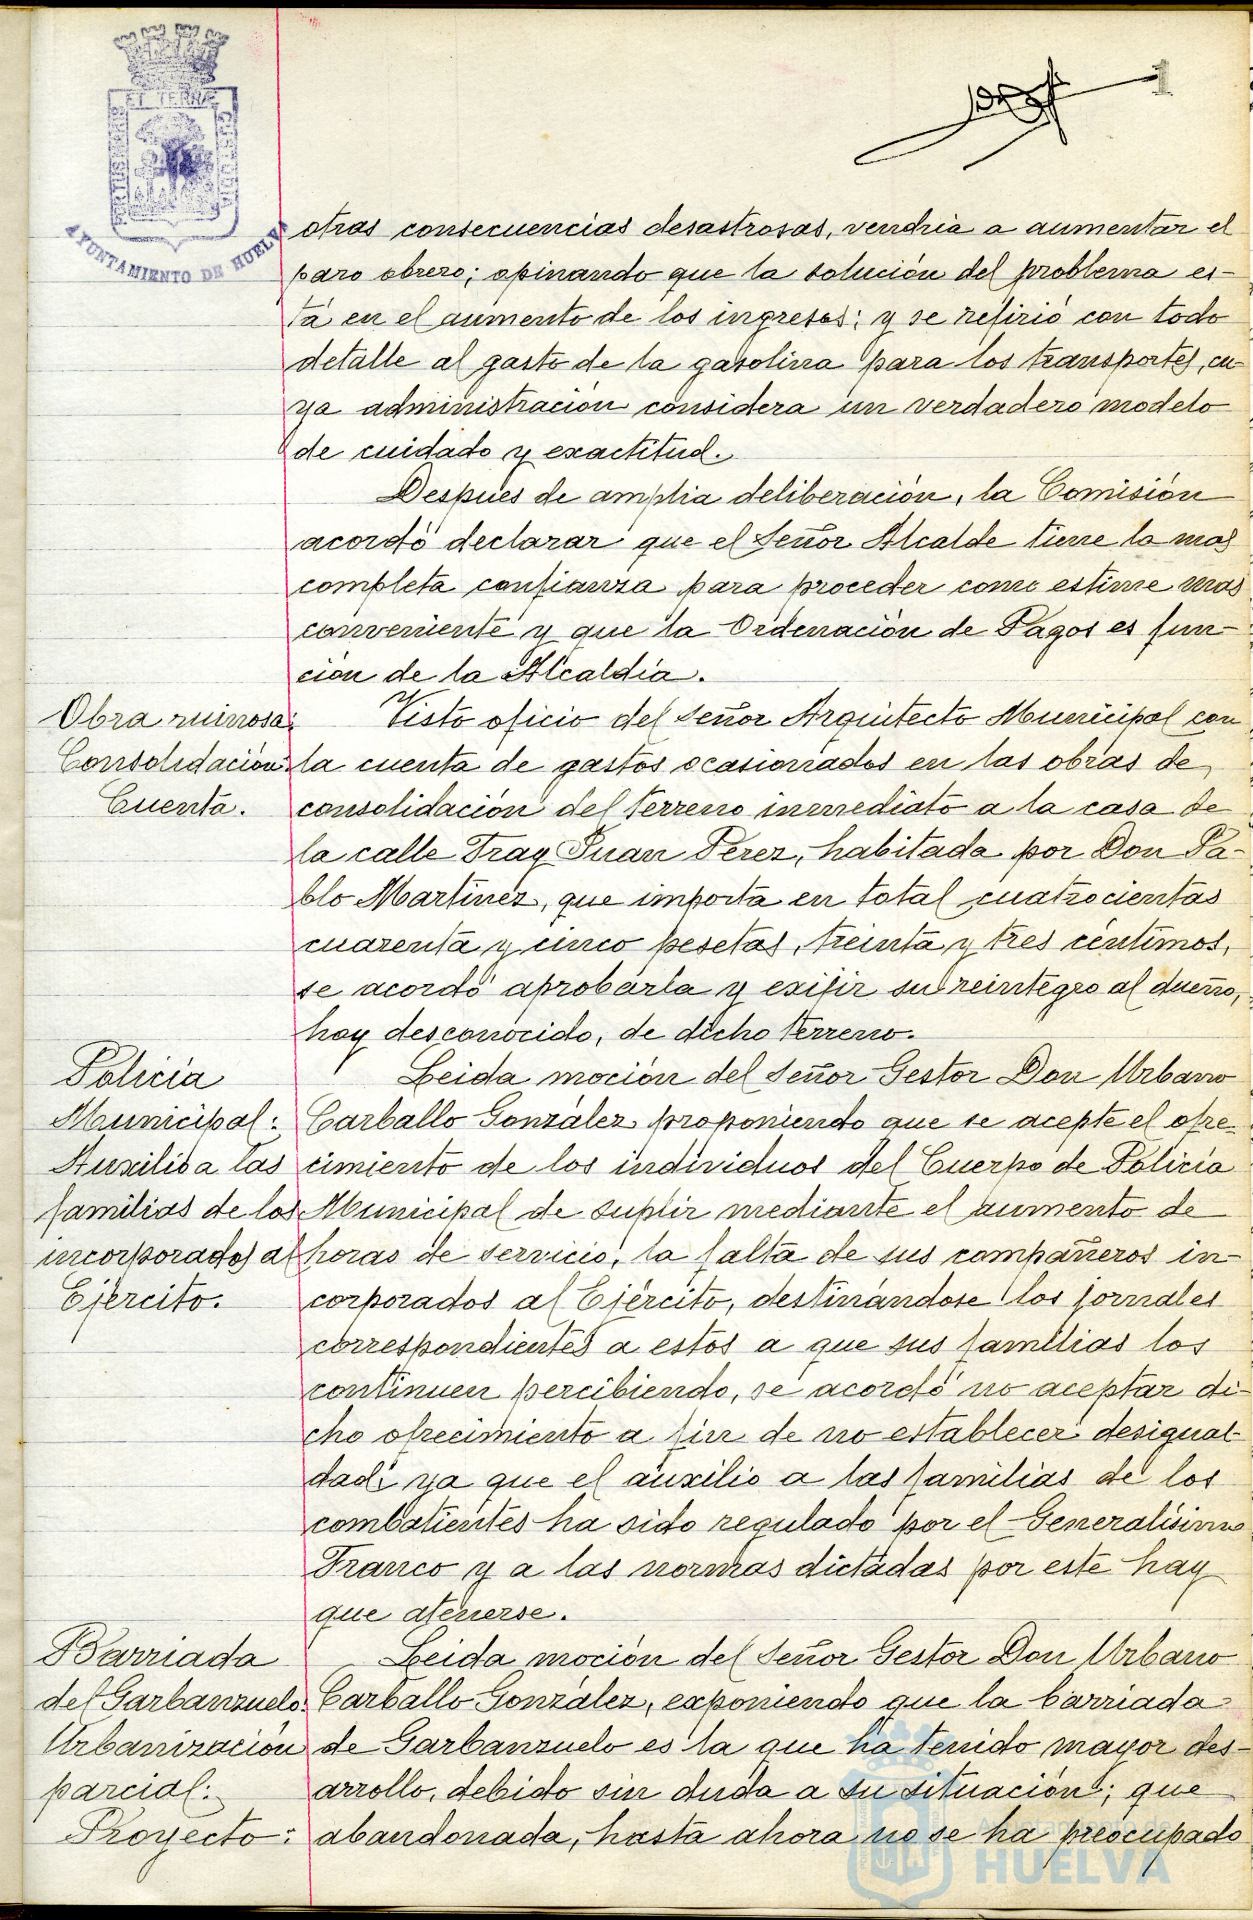 1
PORTUS MARIS ET TERRÆ CUSTODIA
AYUNTAMIENTO DE HUELVA
otras consecuencias desastrosas, vendria a aumentar el
paro obrero; opinando que la solución del problema es-
tá en el aumento de los ingresos; y se refirió con todo
detalle al gasto de la gasolina para los transportes, cu-
ya administración considera un verdadero modelo
de cuidado y exactitud.
Despues de amplia deliberación, la Comisión
acordó declarar que el Señor Alcalde tiene la mas
completa confianza para proceder como estime mas
conveniente y que la Ordenación de Pagos es fun-
ción de la Alcaldía.
Obra ruinosa:
Consolidación:
Cuenta.
Visto oficio del Señor Arquitecto Municipal con
la cuenta de gastos ocasionados en las obras de
consolidación del terreno inmediato a la casa de
la calle Fray Juan Perez, habitada por Don Pa-
blo Martinez, que importa en total cuatrocientas
cuarenta y cinco pesetas, treinta y tres céntimos,
se acordó aprobarla y exijir su reintegro al dueño,
hoy desconocido, de dicho terreno.
Policía
Municipal:
Auxilio a las
familias de los
incorporados al
Ejército.
Leida moción del Señor Gestor Don Urbano
Carballo González proponiendo que se acepte el ofre-
cimiento de los individuos del Cuerpo de Policía
Municipal de suplir mediante el aumento de
horas de servicio, la falta de sus compañeros in-
corporados al Ejército, destinándose los jornales
correspondientes a estos a que sus familias los
continuen percibiendo, se acordó no aceptar di-
cho ofrecimiento a fin de no establecer desigual-
dad; ya que el auxilio a las familias de los
combatientes ha sido regulado por el Generalísimo
Franco y a las normas dictadas por este hay
que atenerse.
Barriada
del Garbanzuelo:
Urbanización
parcial:
Proyecto:
Leida moción del Señor Gestor Don Urbano
Carballo González, exponiendo que la barriada
de Garbanzuelo es la que ha tenido mayor des-
arrollo, debido sin duda a su situación; que
abandonada, hasta ahora no se ha preocupado
Ayuntamiento de
HUELVA